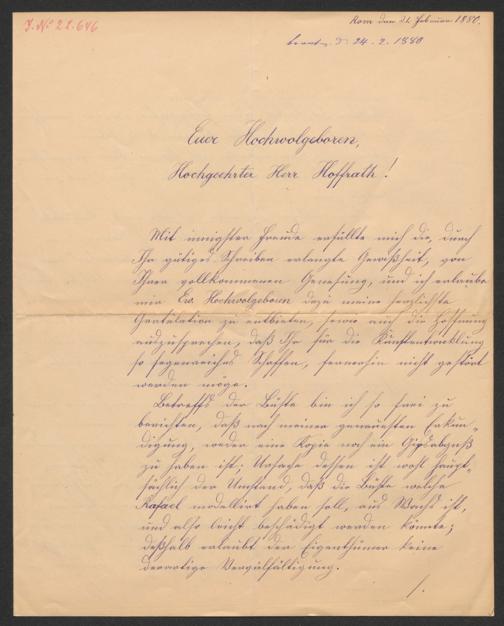 J. No 22.646
Rom den 21. Februar 1880.
24. 2. 1880
Euer Hochwolgeboren,
Hochgeehrter Herr Hoffrath!
Mit innigster Freude erfüllte mich die, durch
Ihr gütiges Schreiben erlangte Gewißheit, von
Ihrer vollkommenen Genesung, und ich erlaube
mir Ew. Hochwolgeboren dazu meine herzlichste
Gratulation zu entbieten, sowie auch die Hoffnung
auszusprechen, daß Ihr für die Kunstentwicklung
so segenreiches Schaffen, fernerhin nicht gestört
werden möge.
Betreffs der Büste bin ich so frei zu
berichten, daß nach meiner genauesten Erkun-
digung, weder eine Kopie noch ein Gipsabguß
zu haben ist; Ursache dessen ist wohl haupt-
sächlich der Umstand, daß die Büste welche
Rafael modellirt haben soll, aus Wachs ist,
und also leicht beschädigt werden könnte;
deßhalb erlaubt der Eigenthümer keine
derartige Vervielfältigung.
/.